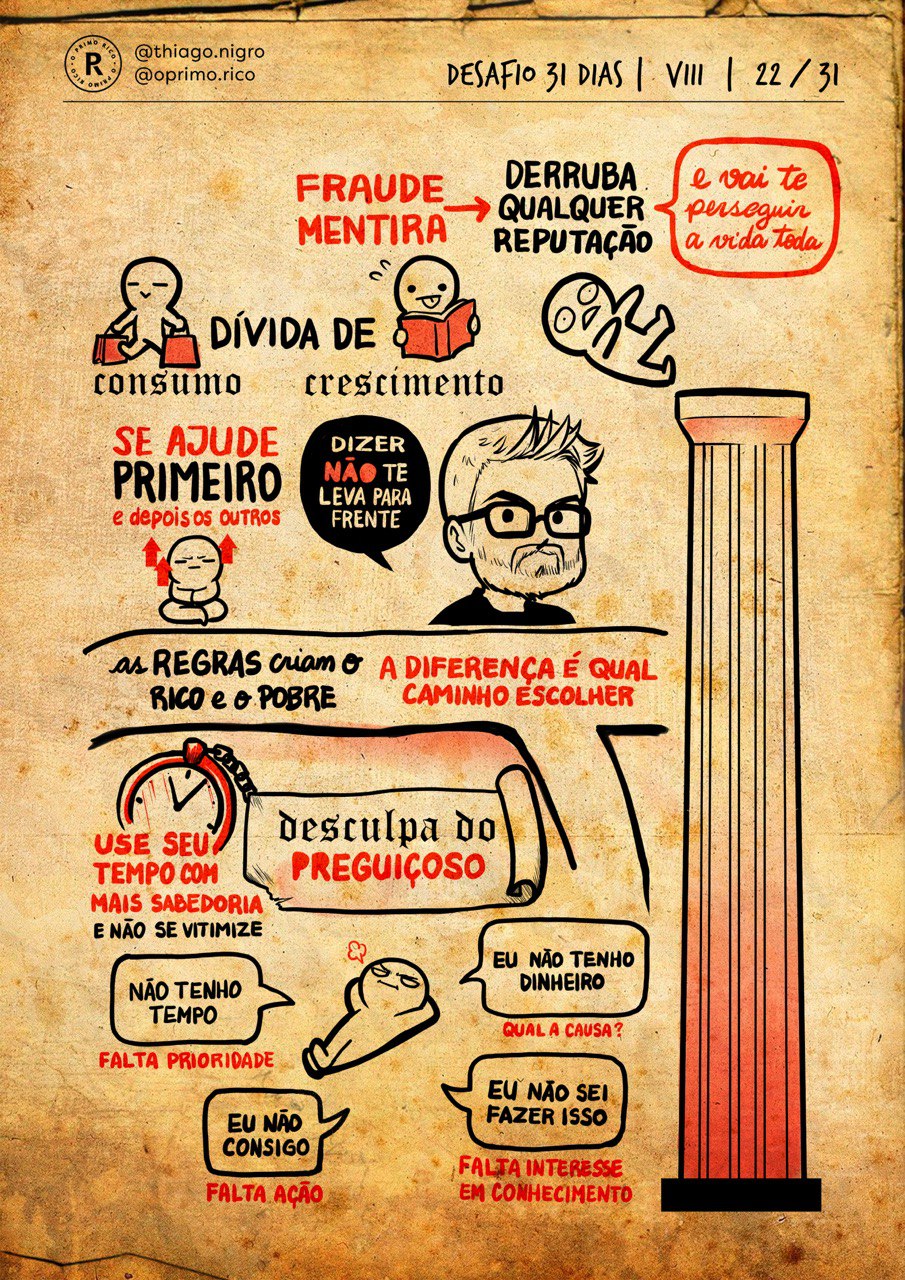 R
O PRIMO RICO • O PRIMO RICO •
@thiago.nigro
@oprimo.rico
DESAFIO 31 DIAS | VIII | 22 / 31
FRAUDE
MENTIRA
DERRUBA
QUALQUER
REPUTAÇÃO
e vai te
perseguir
a vida toda
DÍVIDA DE
consumo
crescimento
SE AJUDE
PRIMEIRO
e depois os OUTROS
DIZER
NÃO TE
LEVA PARA
FRENTE
as REGRAS criam o
RICO e o POBRE
A DIFERENÇA É QUAL
CAMINHO ESCOLHER
USE SEU
TEMPO COM
MAIS SABEDORIA
E NÃO SE VITIMIZE
desculpa do
PREGUIÇOSO
NÃO TENHO
TEMPO
FALTA PRIORIDADE
EU NÃO TENHO
DINHEIRO
QUAL A CAUSA?
EU NÃO
CONSIGO
FALTA AÇÃO
EU NÃO SEI
FAZER ISSO
FALTA INTERESSE
EM CONHECIMENTO